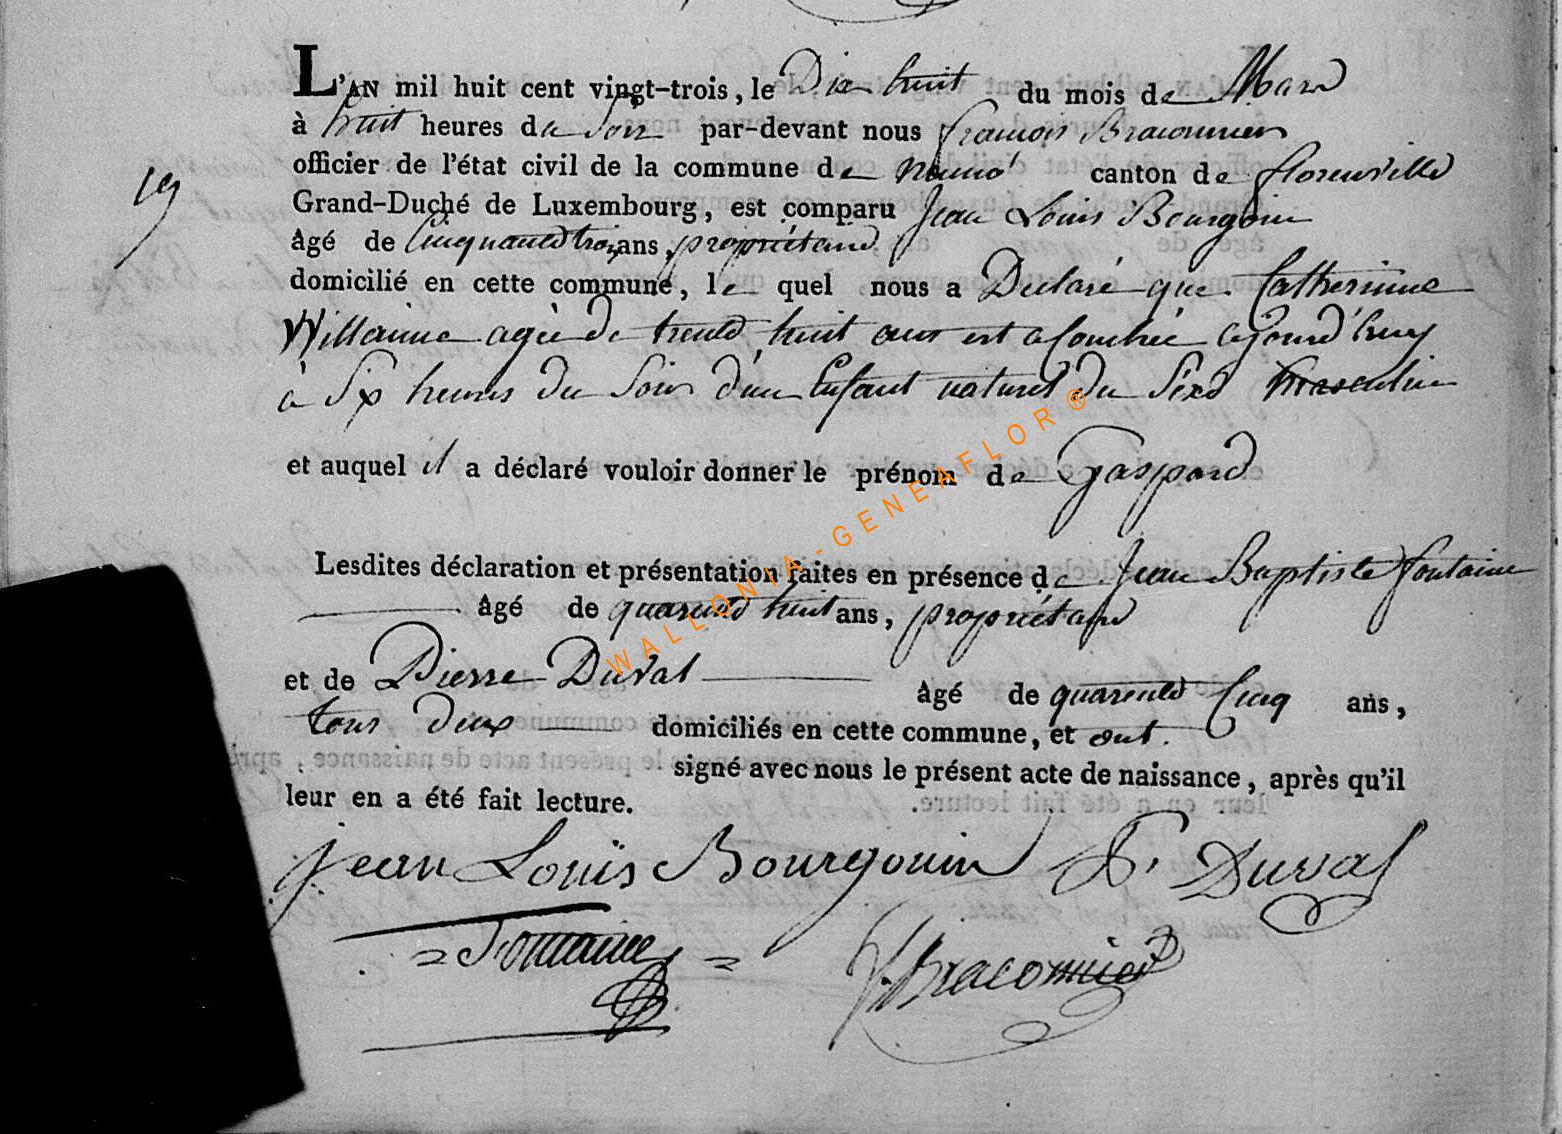 L'AN mil huit cent vingt-trois, le Dix huit du mois de Mars
à huit heures du Soir par-devant nous francois Braconnier
officier de l'état civil de la commune de canton de florenville
19
Grand-Duché de Luxembourg, est comparu Jean Louis Bourgoin
âgé de Cinquante trois ans, propriétaire
domicilié en cette commune, le quel nous a Declaré que Catherinne
Willaime agée de trente huit ans est acouchée ajourd'huy
à Six heures du Soir d'un Enfant naturel du Sexe masculin
et auquel il a déclaré vouloir donner le prénom de Gaspard
Lesdites déclaration et présentation faites en présence de Jean Baptiste fontaine
âgé de quarente huit ans, propriétaire
et de Pierre Duval âgé de quarente Cinq ans,
tous deux domiciliés en cette commune, et ont
signé avec nous le présent acte de naissance, après qu'il
leur en a été fait lecture.
jean Louïs Bourgouin P. Duval
Fontaine f. Braconnier
WALLONIA-GENEAFLOR®